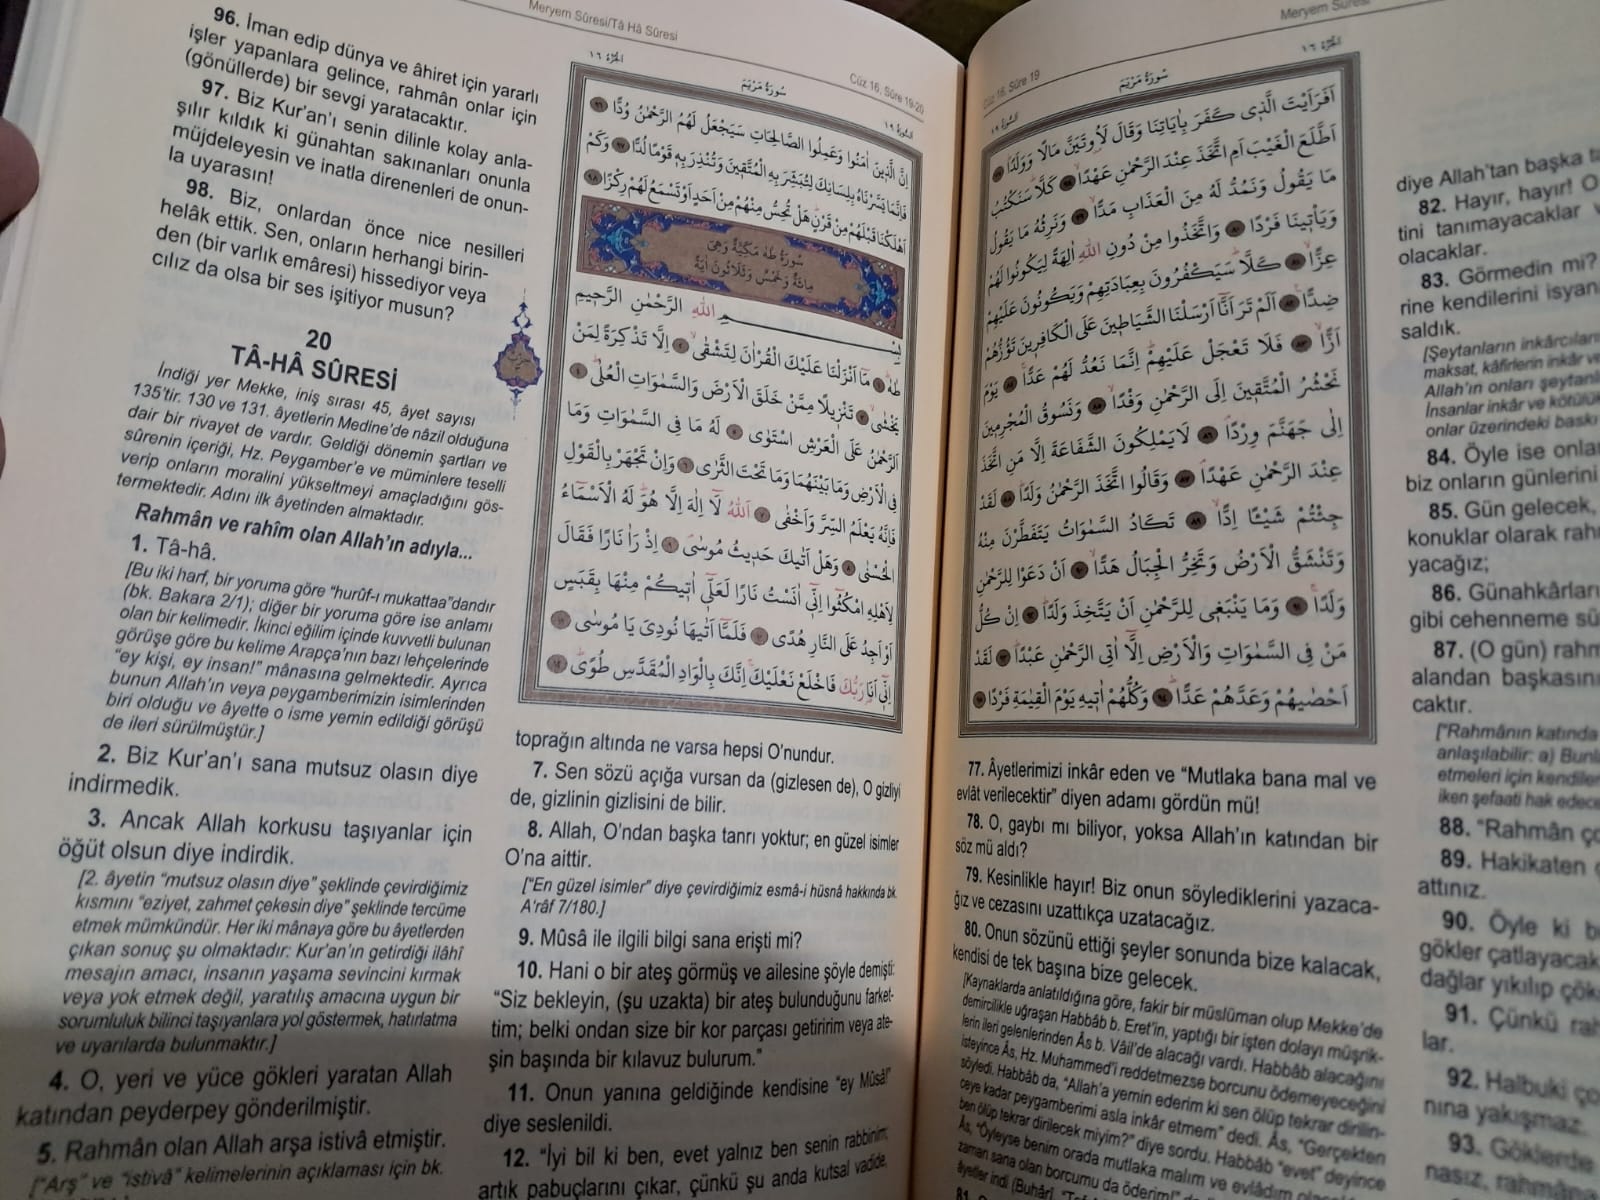 Meryem Sûresi/Tâ Hâ Sûresi
96. İman edip dünya ve âhiret için yararlı
işler yapanlara gelince, rahmân onlar için
(gönüllerde) bir sevgi yaratacaktır.
97. Biz Kur’an’ı senin dilinle kolay anla-
şılır kıldık ki günahtan sakınanları onunla
müjdeleyesin ve inatla direnenleri de onun-
la uyarasın!
98. Biz, onlardan önce nice nesilleri
helâk ettik. Sen, onların herhangi birin-
den (bir varlık emâresi) hissediyor veya
cılız da olsa bir ses işitiyor musun?
20
TÂ-HÂ SÛRESİ
İndiği yer Mekke, iniş sırası 45, âyet sayısı
135’tir. 130 ve 131. âyetlerin Medine’de nâzil olduğuna
dair bir rivayet de vardır. Geldiği dönemin şartları ve
sûrenin içeriği, Hz. Peygamber’e ve müminlere teselli
verip onların moralini yükseltmeyi amaçladığını gös-
termektedir. Adını ilk âyetinden almaktadır.
Rahmân ve rahîm olan Allah’ın adıyla...
1. Tâ-hâ.
[Bu iki harf, bir yoruma göre “hurûf-ı mukattaa”dandır
(bk. Bakara 2/1); diğer bir yoruma göre ise anlamı
olan bir kelimedir. İkinci eğilim içinde kuvvetli bulunan
görüşe göre bu kelime Arapça’nın bazı lehçelerinde
“ey kişi, ey insan!” mânasına gelmektedir. Ayrıca
bunun Allah’ın veya peygamberimizin isimlerinden
biri olduğu ve âyette o isme yemin edildiği görüşü
de ileri sürülmüştür.]
2. Biz Kur’an’ı sana mutsuz olasın diye
indirmedik.
3. Ancak Allah korkusu taşıyanlar için
öğüt olsun diye indirdik.
[2. âyetin “mutsuz olasın diye” şeklinde çevirdiğimiz
kısmını “eziyet, zahmet çekesin diye” şeklinde tercüme
etmek mümkündür. Her iki mânaya göre bu âyetlerden
çıkan sonuç şu olmaktadır: Kur’an’ın getirdiği ilâhî
mesajın amacı, insanın yaşama sevincini kırmak
veya yok etmek değil, yaratılış amacına uygun bir
sorumluluk bilinci taşıyanlara yol göstermek, hatırlatma
ve uyarılarda bulunmaktır.]
4. O, yeri ve yüce gökleri yaratan Allah
katından peyderpey gönderilmiştir.
5. Rahmân olan Allah arşa istivâ etmiştir.
[“Arş” ve “istivâ” kelimelerinin açıklaması için bk.
Cüz 16, Sûre 19-20
الجزء ١٦
سورة مريم
السورة ١٩
اِنَّ الَّذينَ اٰمَنُوا وَعَمِلُوا الصَّالِحَاتِ سَيَجْعَلُ لَهُمُ الرَّحْمٰنُ وُدًّا ٩٦
فَاِنَّمَا يَسَّرْنَاهُ بِلِسَانِكَ لِتُبَشِّرَ بِهِ الْمُتَّقينَ وَتُنْذِرَ بِه قَوْمًا لُدًّا ٩٧ وَكَمْ
اَهْلَكْنَا قَبْلَهُمْ مِنْ قَرْنٍ هَلْ تُحِسُّ مِنْهُمْ مِنْ اَحَدٍ اَوْ تَسْمَعُ لَهُمْ رِكْزًا ٩٨
سُورَةُ طٰهٰ مَكِّيَّةٌ وَهِيَ
مِائَةٌ وَخَمْسٌ وَثَلَاثُونَ اٰيَةً
بِسْمِ اللّٰهِ الرَّحْمٰنِ الرَّحيمِ
طٰهٰ ١ مَا اَنْزَلْنَا عَلَيْكَ الْقُرْاٰنَ لِتَشْقٰى ٢ اِلَّا تَذْكِرَةً لِمَنْ
يَخْشٰى ٣ تَنْزيلًا مِمَّنْ خَلَقَ الْاَرْضَ وَالسَّمٰوَاتِ الْعُلٰى ٤
اَلرَّحْمٰنُ عَلَى الْعَرْشِ اسْتَوٰى ٥ لَهُ مَا فِي السَّمٰوَاتِ وَمَا
فِي الْاَرْضِ وَمَا بَيْنَهُمَا وَمَا تَحْتَ الثَّرٰى ٦ وَاِنْ تَجْهَرْ بِالْقَوْلِ
فَاِنَّهُ يَعْلَمُ السِّرَّ وَاَخْفٰى ٧ اَللّٰهُ لَا اِلٰهَ اِلَّا هُوَ لَهُ الْاَسْمَاءُ
الْحُسْنٰى ٨ وَهَلْ اَتٰيكَ حَديثُ مُوسٰى ٩ اِذْ رَاٰ نَارًا فَقَالَ
لِاَهْلِهِ امْكُثُوا اِنّي اٰنَسْتُ نَارًا لَعَلّي اٰتيكُمْ مِنْهَا بِقَبَسٍ
اَوْ اَجِدُ عَلَى النَّارِ هُدًى ١٠ فَلَمَّا اَتٰيهَا نُودِيَ يَا مُوسٰى ١١
اِنّي اَنَا رَبُّكَ فَاخْلَعْ نَعْلَيْكَ اِنَّكَ بِالْوَادِ الْمُقَدَّسِ طُوًى ١٢
toprağın altında ne varsa hepsi O’nundur.
7. Sen sözü açığa vursan da (gizlesen de), O gizliyi
de, gizlinin gizlisini de bilir.
8. Allah, O’ndan başka tanrı yoktur; en güzel isimler
O’na aittir.
[“En güzel isimler” diye çevirdiğimiz esmâ-i hüsnâ hakkında bk.
A‘râf 7/180.]
9. Mûsâ ile ilgili bilgi sana erişti mi?
10. Hani o bir ateş görmüş ve ailesine şöyle demişti:
“Siz bekleyin, (şu uzakta) bir ateş bulunduğunu farket-
tim; belki ondan size bir kor parçası getiririm veya ate-
şin başında bir kılavuz bulurum.”
11. Onun yanına geldiğinde kendisine “ey Mûsâ!”
diye seslenildi.
12. “İyi bil ki ben, evet yalnız ben senin rabbinim;
artık pabuçlarını çıkar, çünkü şu anda kutsal vadide,
Meryem Sûresi
Cüz 16, Sûre 19
الجزء ١٦
سورة مريم
السورة ١٩
اَفَرَاَيْتَ الَّذي كَفَرَ بِاٰيَاتِنَا وَقَالَ لَاُوتَيَنَّ مَالًا وَوَلَدًا ٧٧
اَطَّلَعَ الْغَيْبَ اَمِ اتَّخَذَ عِنْدَ الرَّحْمٰنِ عَهْدًا ٧٨ كَلَّا سَنَكْتُبُ
مَا يَقُولُ وَنَمُدُّ لَهُ مِنَ الْعَذَابِ مَدًّا ٧٩ وَنَرِثُهُ مَا يَقُولُ
وَيَأْتينَا فَرْدًا ٨٠ وَاتَّخَذُوا مِنْ دُونِ اللّٰهِ اٰلِهَةً لِيَكُونُوا لَهُمْ
عِزًّا ٨١ كَلَّا سَيَكْفُرُونَ بِعِبَادَتِهِمْ وَيَكُونُونَ عَلَيْهِمْ
ضِدًّا ٨٢ اَلَمْ تَرَ اَنَّا اَرْسَلْنَا الشَّيَاطينَ عَلَى الْكَافِرينَ تَؤُزُّهُمْ
اَزًّا ٨٣ فَلَا تَعْجَلْ عَلَيْهِمْ اِنَّمَا نَعُدُّ لَهُمْ عَدًّا ٨٤ يَوْمَ
نَحْشُرُ الْمُتَّقينَ اِلَى الرَّحْمٰنِ وَفْدًا ٨٥ وَنَسُوقُ الْمُجْرِمينَ
اِلٰى جَهَنَّمَ وِرْدًا ٨٦ لَا يَمْلِكُونَ الشَّفَاعَةَ اِلَّا مَنِ اتَّخَذَ
عِنْدَ الرَّحْمٰنِ عَهْدًا ٨٧ وَقَالُوا اتَّخَذَ الرَّحْمٰنُ وَلَدًا ٨٨ لَقَدْ
جِئْتُمْ شَيْـًٔا اِدًّا ٨٩ تَكَادُ السَّمٰوَاتُ يَتَفَطَّرْنَ مِنْهُ
وَتَنْشَقُّ الْاَرْضُ وَتَخِرُّ الْجِبَالُ هَدًّا ٩٠ اَنْ دَعَوْا لِلرَّحْمٰنِ
وَلَدًا ٩١ وَمَا يَنْبَغي لِلرَّحْمٰنِ اَنْ يَتَّخِذَ وَلَدًا ٩٢ اِنْ كُلُّ
مَنْ فِي السَّمٰوَاتِ وَالْاَرْضِ اِلَّا اٰتِي الرَّحْمٰنِ عَبْدًا ٩٣ لَقَدْ
اَحْصٰيهُمْ وَعَدَّهُمْ عَدًّا ٩٤ وَكُلُّهُمْ اٰتيهِ يَوْمَ الْقِيٰمَةِ فَرْدًا ٩٥
77. Âyetlerimizi inkâr eden ve “Mutlaka bana mal ve
evlât verilecektir” diyen adamı gördün mü!
78. O, gaybı mı biliyor, yoksa Allah’ın katından bir
söz mü aldı?
79. Kesinlikle hayır! Biz onun söylediklerini yazaca-
ğız ve cezasını uzattıkça uzatacağız.
80. Onun sözünü ettiği şeyler sonunda bize kalacak,
kendisi de tek başına bize gelecek.
[Kaynaklarda anlatıldığına göre, fakir bir müslüman olup Mekke’de
demircilikle uğraşan Habbâb b. Eret’in, yaptığı bir işten dolayı müşrik-
lerin ileri gelenlerinden Âs b. Vâil’de alacağı vardı. Habbâb alacağını
isteyince Âs, Hz. Muhammed’i reddetmezse borcunu ödemeyeceğini
söyledi. Habbâb da, “Allah’a yemin ederim ki sen ölüp tekrar dirilin-
ceye kadar peygamberimi asla inkâr etmem” dedi. Âs, “Gerçekten
ben ölüp tekrar dirilecek miyim?” diye sordu. Habbâb “evet” deyince
Âs, “Öyleyse benim orada mutlaka malım ve evlâdım olacak
zaman sana olan borcumu da öderim!”
âyetler indi (Buhârî,
81.
diye Allah’tan başka
82. Hayır, hayır! O
tini tanımayacaklar
olacaklar.
83. Görmedin mi?
rine kendilerini isyan
saldık.
[Şeytanların inkârcıların
maksat, kâfirlerin inkâr ve
Allah’ın onları şeytanl
İnsanlar inkâr ve kötülük
onlar üzerindeki baskı
84. Öyle ise onlar
biz onların günlerini
85. Gün gelecek,
konuklar olarak rah
yacağız;
86. Günahkârları
gibi cehenneme sü
87. (O gün) rahm
alandan başkasını
caktır.
[“Rahmânın katında
anlaşılabilir: a) Bunl
etmeleri için kendiler
iken şefaati hak edece
88. “Rahmân ço
89. Hakikaten
attınız.
90. Öyle ki b
gökler çatlayacak
dağlar yıkılıp çök
91. Çünkü rah
lar.
92. Halbuki ço
nına yakışmaz.
93. Göklerde
nasız, rahmâna